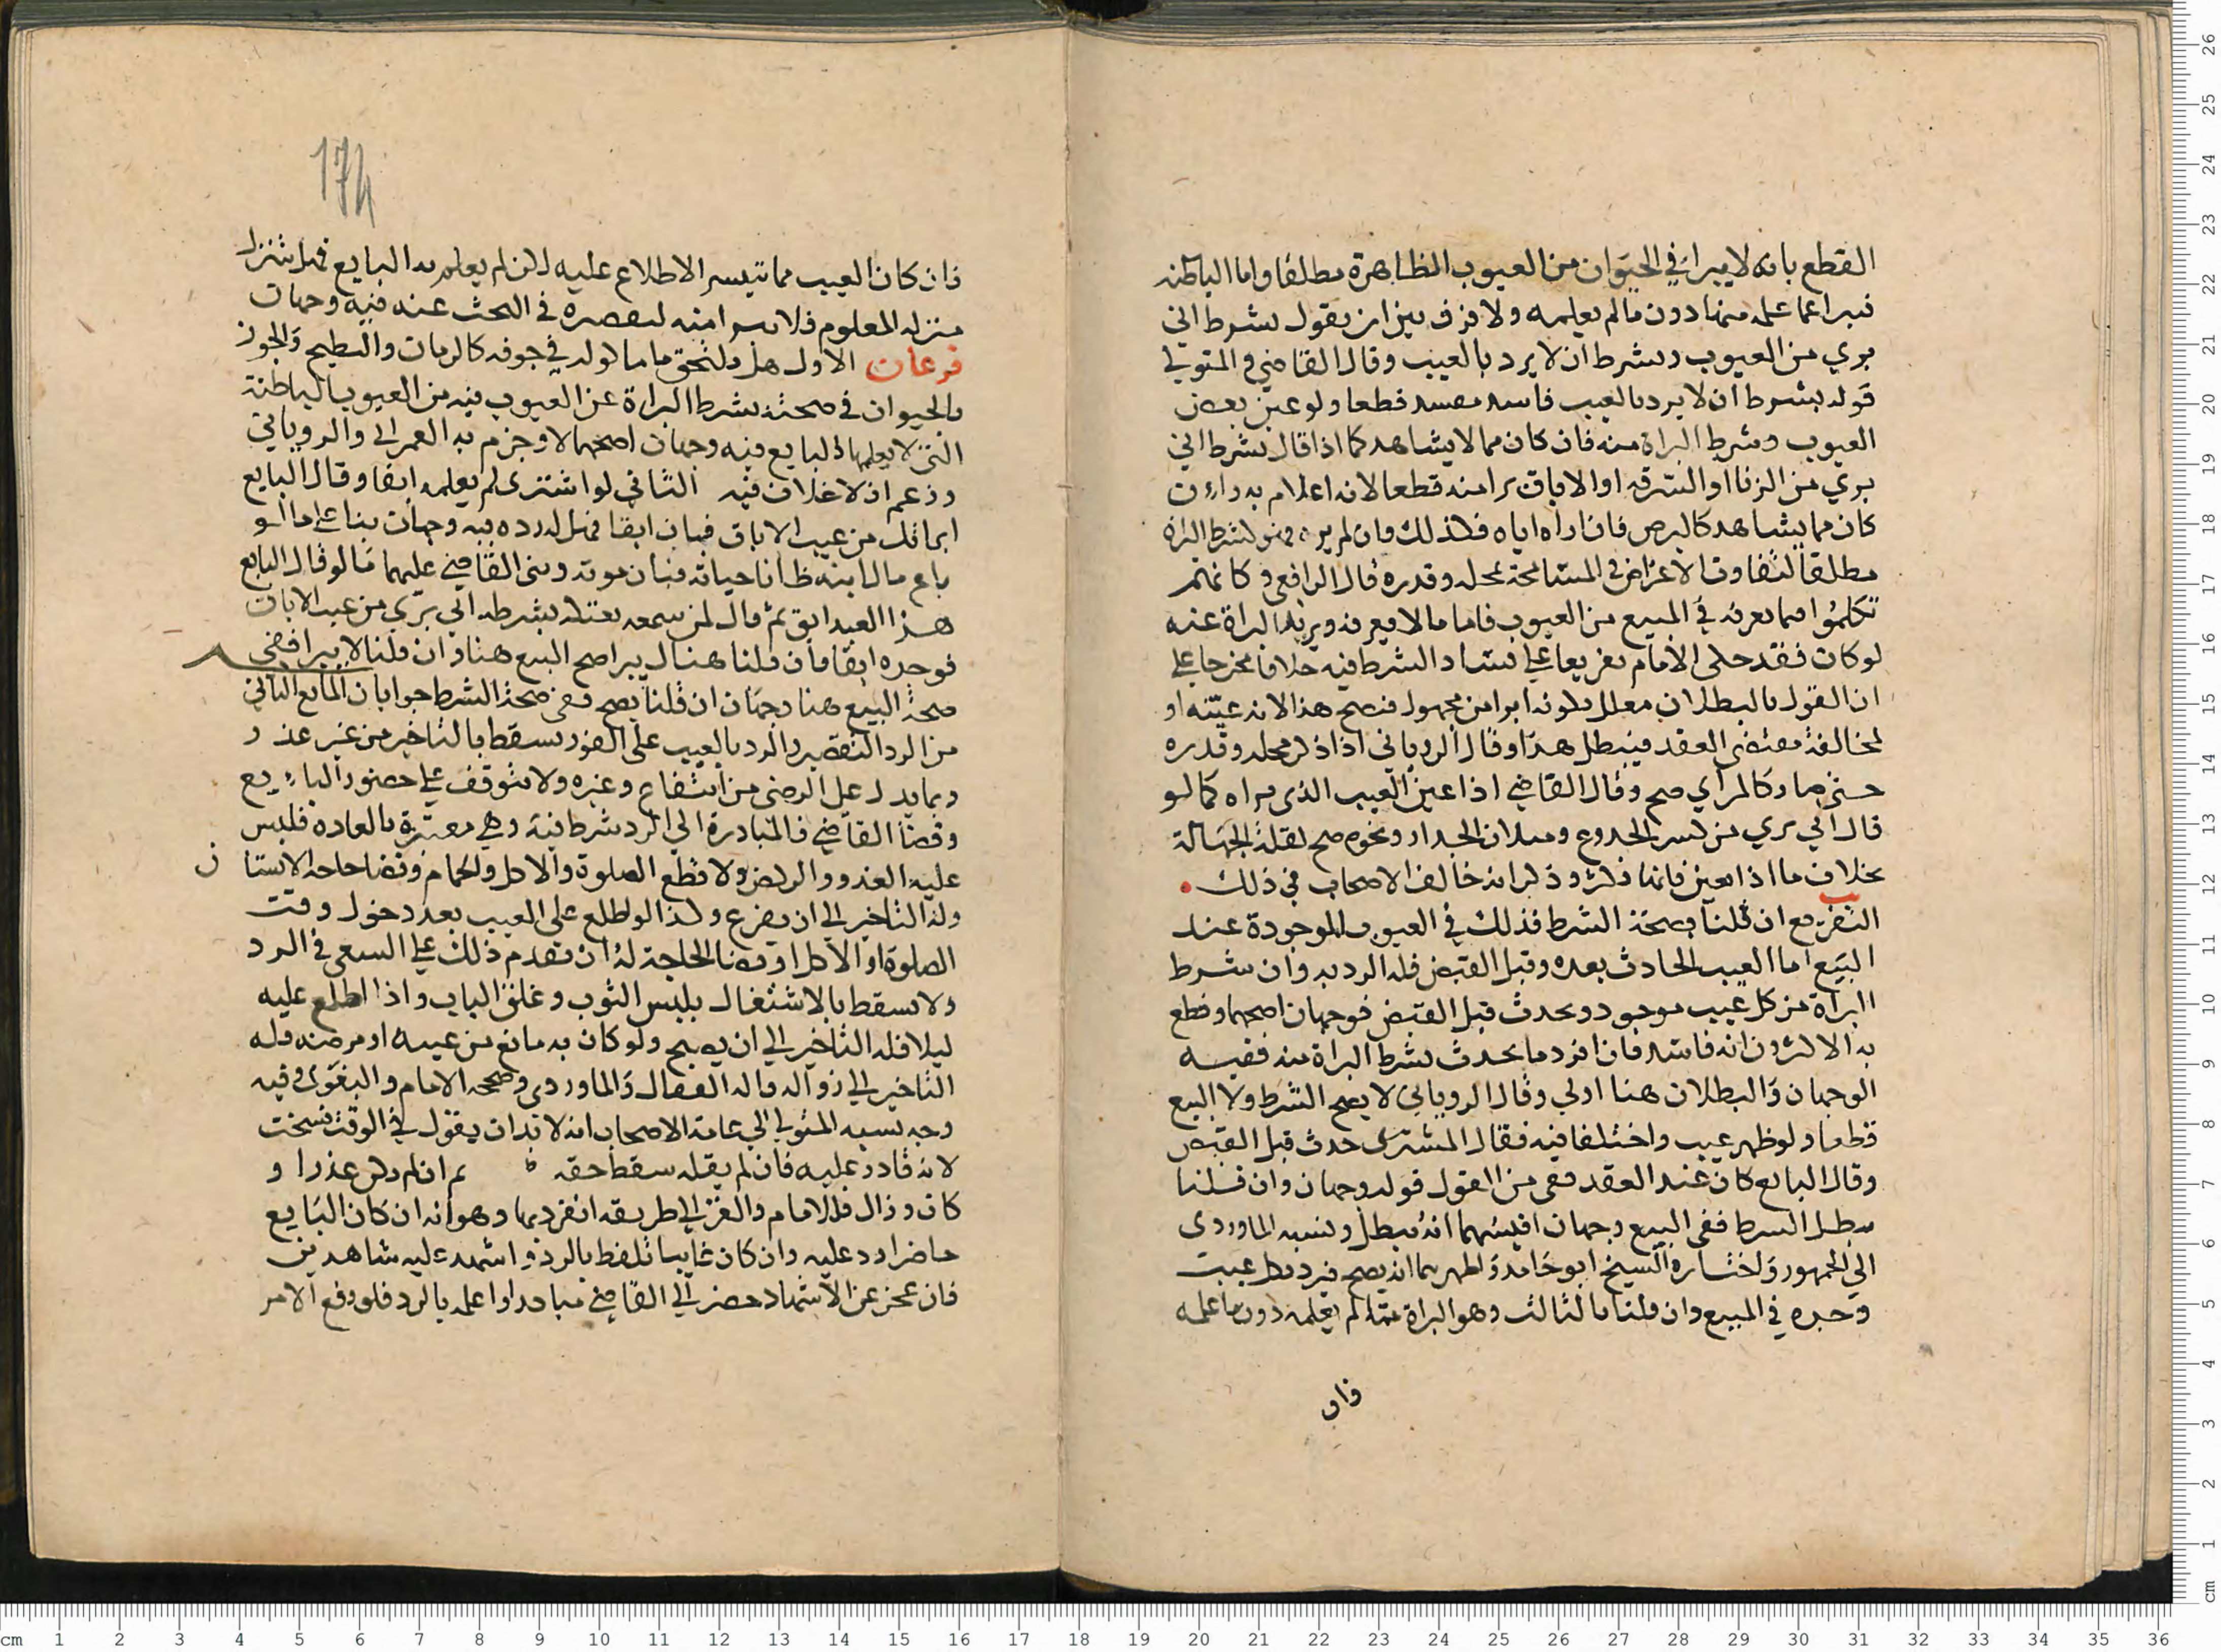 القطع بانه لا يبرا في الحيوان من العيوب الظاهرة مطلقا واما الباطنه
فيبرا عما علمه منها دون ما لم يعلمه ولا فرق بين ان يقول بشرط اني
بري من العيوب وبشرط ان لا يرد بالعيب وقال القاضي والمتولي
قوله بشرط ان لا يرد بالعيب فاسد مفسد قطعا ولو عين بعض
العيوب وشرط البراة منه فان كان مما لا يشاهد كما اذا قال بشرط اني
بري من الزنا او السرقه او الاباق برا منه قطعا لانه اعلام به وان
كان مما يشاهد كالبرص فان اراه اياه فكذلك وان لم يره فهو كشرط البراة
مطلقا لتفاوت الاغراض في المسامحة بمحله وقدره قال الرافعي وكانهم
تكلموا فيما يعرفه في المبيع من العيوب فاما ما لا يعرفه ويريد البراة عنه
لو كان فقد حكى الامام تفريعا على فساد الشرط فيه خلافا مخرجا على
ان القول بالبطلان معلل بكونه ابرا من مجهول فيصح هذا لانه عينه او
لمخالفة مقتضى العقد فيبطل هذا وقال الروياني اذا ذكر محله وقدره
حتى صار كالمرأي صح وقال القاضي اذا عين العيب الذي يراه كما لو
قال اني بري من كسر الجدوع وميلان الجدار ونحوه صح لقلة الجهالة
بخلاف ما اذا لم يعين فانها تكثر وذكر انه خالف الاصحاب في ذلك
التفريع ان قلنا بصحة الشرط فذلك في العيوب الموجودة عند
البيع اما العيب الحادث بعده وقبل القبض فله الرد به وان شرط
البراة من كل عيب موجود ويحدث قبل القبض فوجهان اصحهما وقطع
به الاكثرون انه فاسد فان افرد ما يحدث بشرط البراة منه ففيه
الوجهان والبطلان هنا اولى وقال الروياني لا يصح الشرط ولا البيع
قطعا ولو ظهر عيب واختلفا فيه فقال المشتري حدث قبل القبض
وقال البايع كان عند العقد ففي من القول قوله وجهان وان قلنا
يبطل الشرط ففي البيع وجهان اقيسهما انه يبطل ونسبه الماوردي
الى الجمهور واختاره الشيخ ابو حامد واظهرهما انه يصح فيرد بكل عيب
وجده في المبيع وان قلنا بالثالث وهو البراة عما لم يعلمه دون ما علمه
فان
174
فان كان العيب مما تيسر الاطلاع عليه لكن لم يعلم به البايع فهل تنزل
منزلة المعلوم فلا يبرا منه لتقصيره في البحث عنه فيه وجهان
فرعان الاول هل يلتحق ما ماكوله في جوفه كالرمان والبطيخ والجوز
بالحيوان في صحة شرط البراة عن العيوب فيه من العيوب الباطنة
التي لا يعلمها البايع فيه وجهان اصحهما لا وجزم به العمراني والروياني
وزعم ان لا خلاف فيه الثاني لو اشترى لم يعلمه ابقا وقال البايع
ابراتك من عيب الاباق فبان ابقا فهل له رده فيه وجهان بناء على ما لو
باع مال ابنه ظانا حياته فبان موته وبنى القاضي عليهما ما لو قال البايع
هذا العبد ابق ثم قال لمن سمعه بعتكه بشرط اني بري من عيب الاباق
فوجده ابقا فان قلنا هناك يبرا صح البيع هنا وان قلنا لا يبرا ففي
صحة البيع هنا وجهان ان قلنا يصح ففي صحة الشرط جوابان المانع الثاني
من الرد التقصير والرد بالعيب على الفور يسقط بالتاخير من غير عذر
وبما يدل على الرضى من انتفاع وغيره ولا يتوقف على حضور البايع
وقضا القاضي فالمبادرة الى الرد شرط فيه وهي معتبرة بالعاده فليس
عليه العدو والركض ولا قطع الصلوة والاكل والحمام وقضا حاجة الانسان
وله التاخير الى ان يفرغ وكذا لو اطلع على العيب بعد دخول وقت
الصلوة او الاكل او قضا الحاجة له ان يقدم ذلك على السعي في الرد
ولا يسقط بالاشتغال بلبس الثوب وغلق الباب واذا اطلع عليه
ليلا فله التاخير الى ان يصبح ولو كان به مانع من عيبه او مرضه فله
التاخير الى زواله قاله القفال والماوردي وصححه الامام والبغوي وفيه
وجه نسبه المتولي الى عامة الاصحاب انه لا بد ان يقول في الوقت فسخت
لانه قادر عليه فان لم يقله سقط حقه ثم ان لم يكن عذر او
كان وزال فللامام والغزالي طريقه انفرد بها وهو انه ان كان البايع
حاضرا رد عليه وان كان غايبا تلفظ بالرد واشهد عليه شاهدين
فان عجز عن الاشهاد حضر الى القاضي مبادرا واعلمه بالرد فلو رفع الامر